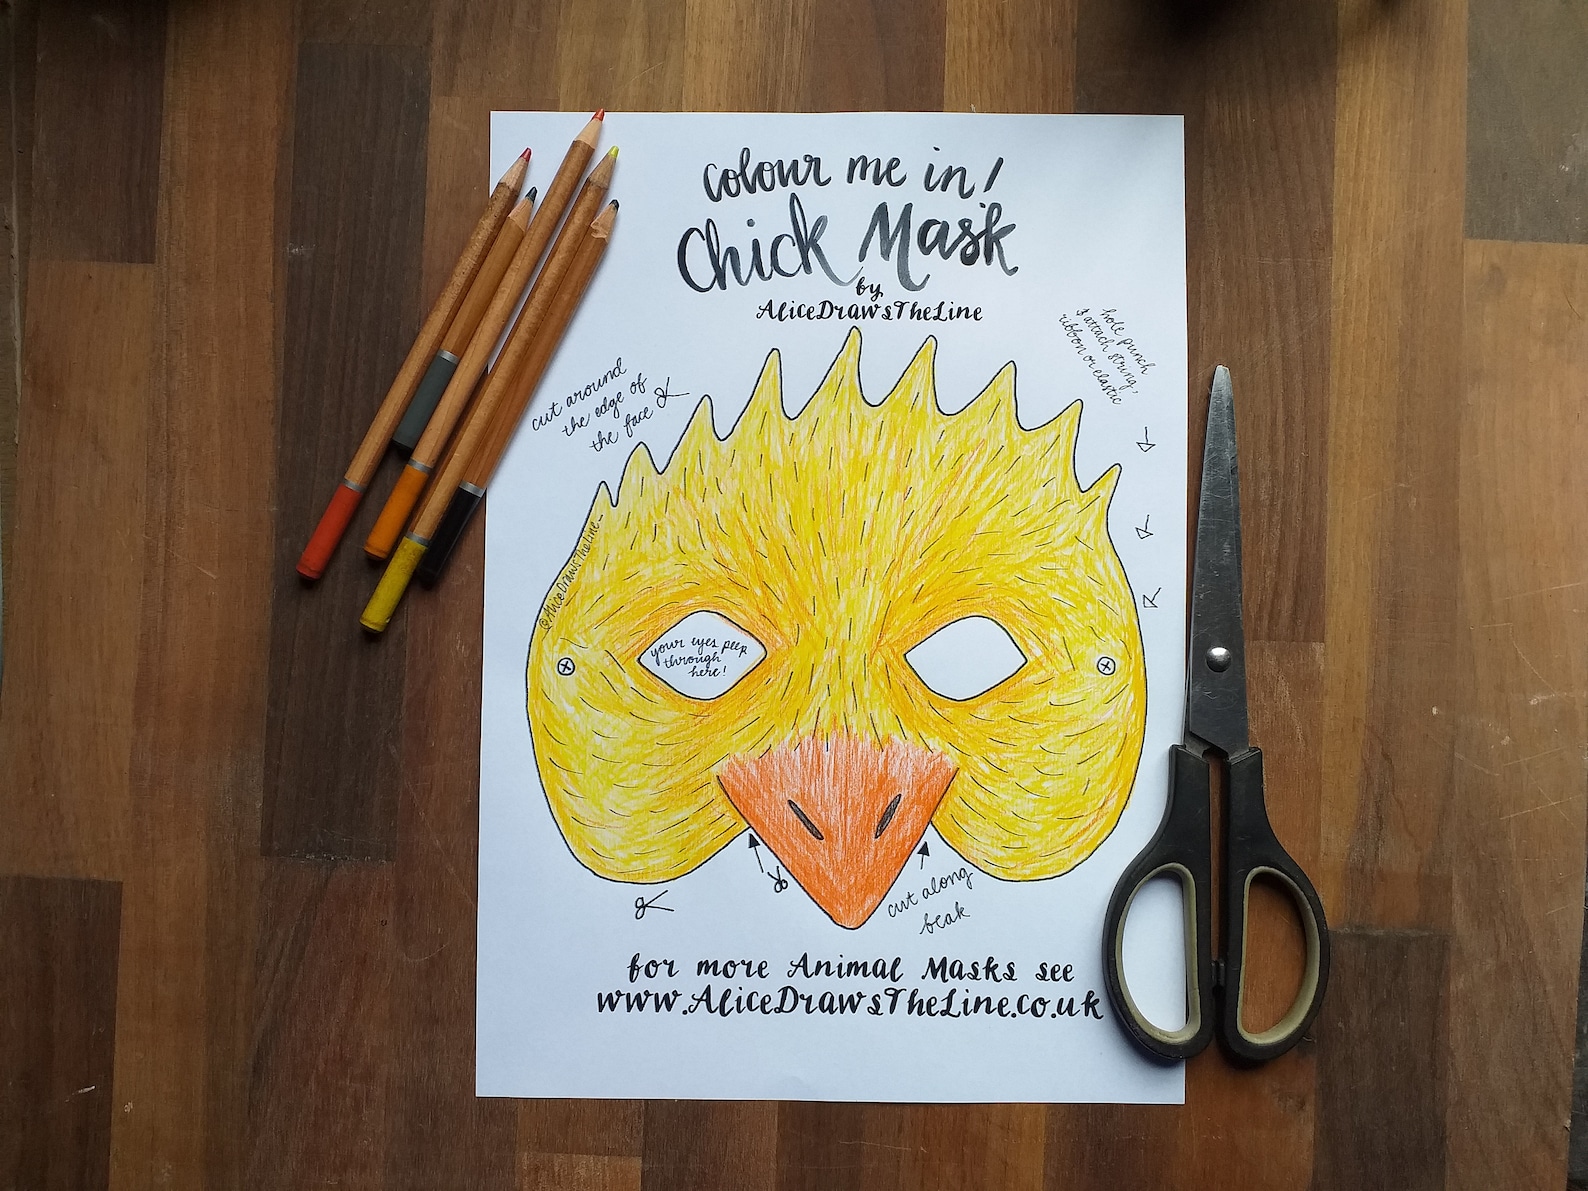 colour me in!
Chick Mask
by
AliceDrawsTheLine
hole punch
& attach string,
ribbon or elastic
cut around
the edge of
the face
@AliceDrawsTheLine_
your eyes peep
through
here!
cut along
beak
for more Animal Masks see
www.AliceDrawsTheLine.co.uk